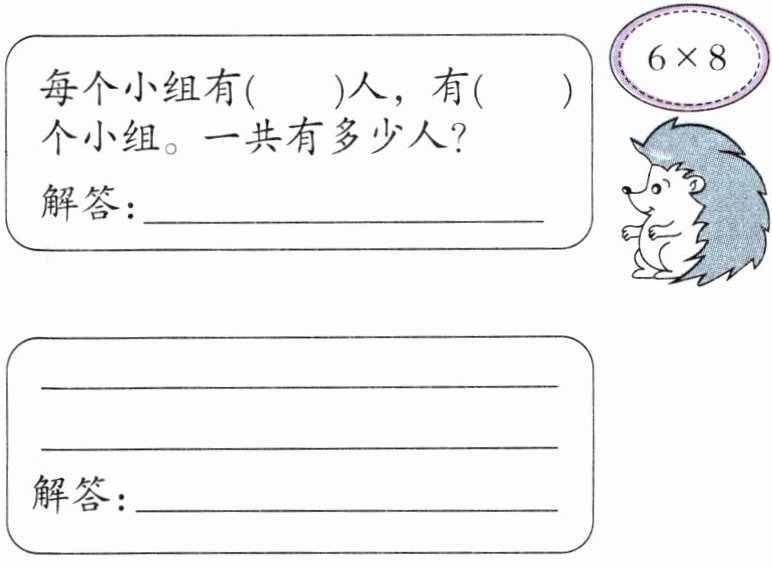 每个小组有(　　)人，有(　　)
个小组。一共有多少人？
解答：
6×8
解答：